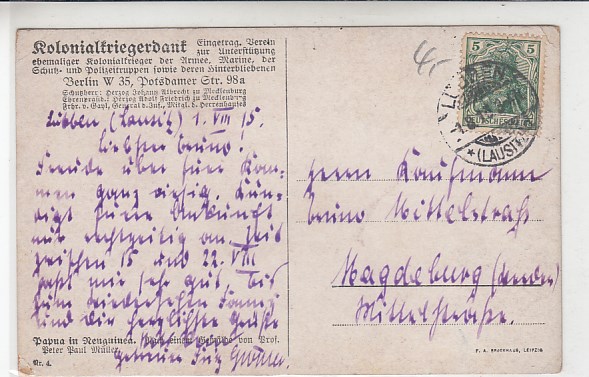 Kolonialkriegerdank Eingetrag. Verein
zur Unterstützung
ehemaliger Kolonialkrieger der Armee, Marine, der
Schutz- und Polizeitruppen sowie deren Hinterbliebenen
Berlin W 35, Potsdamer Str. 98a
Schutzherr: Herzog Johann Albrecht zu Mecklenburg
Ehrenpräsid.: Herzog Adolf Friedrich zu Mecklenburg
Frhr. v. Gayl, General d. Inf., Mitgl. d. Herrenhauses
Lübben (Lausitz) 1. VIII 15.
Liebster Bruno!
Freude über Euer Kom-
men ganz riesig. Kün-
digt Eure Ankunft
nur rechtzeitig an. Zeit
zwischen 15 und 22. VIII
paßt mir sehr gut. Bis
zum Wiedersehen
und Dir herzlichste Grüße
getreuer Fritz
Papua in Neuguinea. Nach einem Gemälde von Prof.
Peter Paul Müller.
Nr. 4.
5 5
DEUTSCHES REICH
LÜBBEN
*(LAUSITZ)
Herrn Kaufmann
Bruno Mittelstraß
Magdeburg
Mittelstraße.
F. A. BROCKHAUS, LEIPZIG